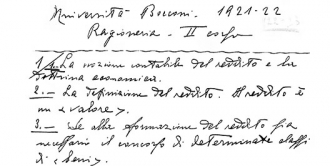 Università Bocconi. 1921-22
Ragioneria - II corso
1.— La nozione contabile del reddito e la
dottrina economica.
2.— La definizione del reddito. Il reddito è
un «valore».
3.— Le alla formazione del reddito sia
necessario il concorso di determinate classi
di «beni».